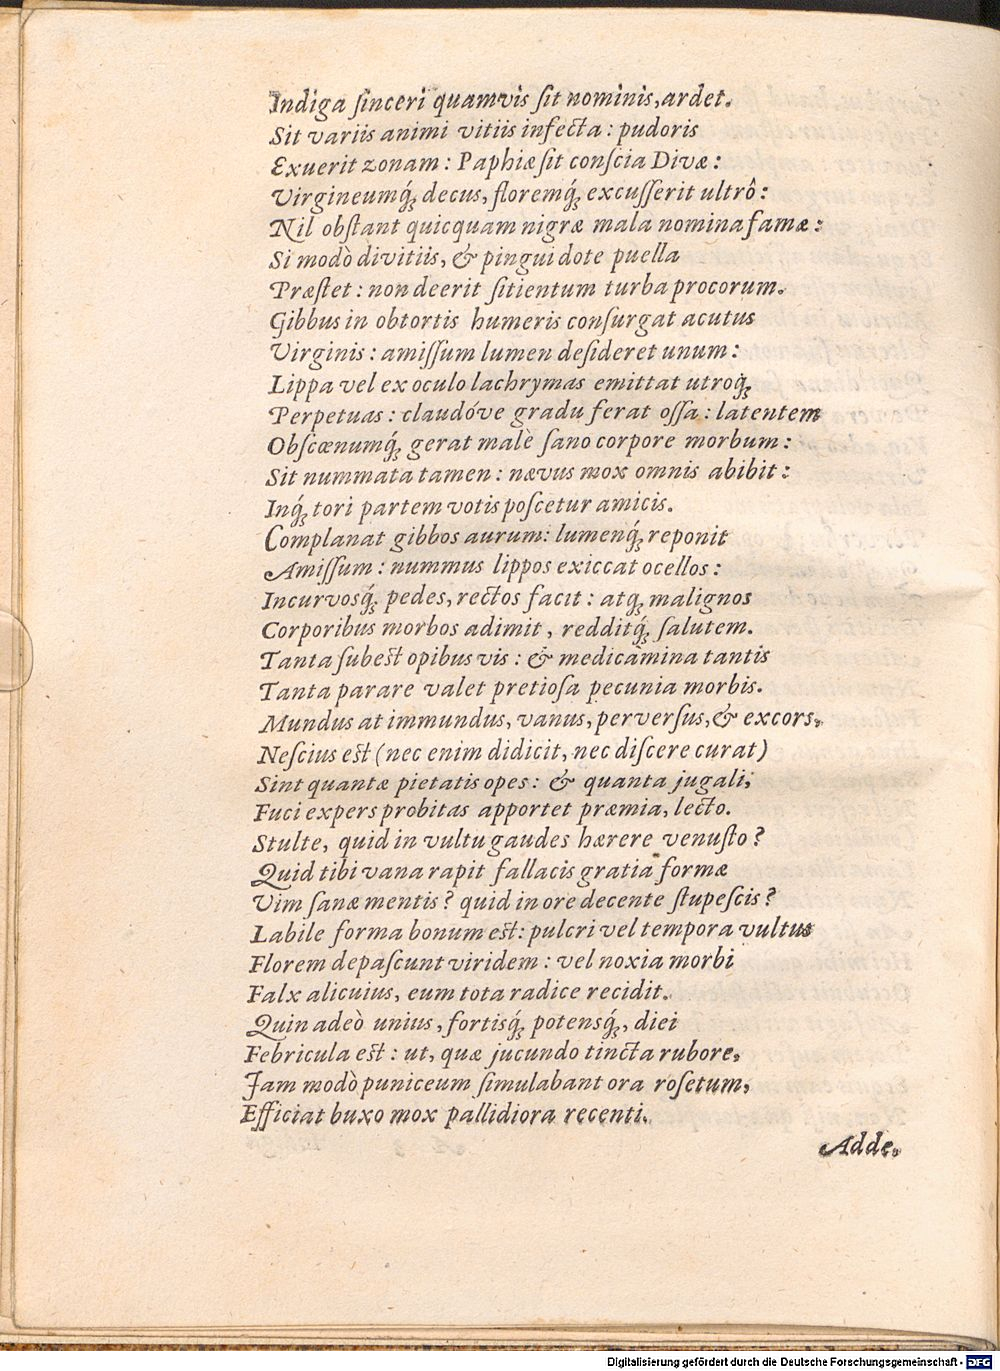 Indiga ſinceri quamvis ſit nominis, ardet.
Sit variis animi vitiis infecta: pudoris
Exuerit zonam: Paphiæ ſit conſcia Divæ:
Virgineumq́; decus, floremq́; excuſſerit ultrô:
Nil obſtant quicquam nigræ mala nomina famæ:
Si modò divitiis, & pingui dote puella
Præſtet: non deerit ſitientum turba procorum.
Gibbus in obtortis humeris conſurgat acutus
Virginis: amiſſum lumen deſideret unum:
Lippa vel ex oculo lachrymas emittat utroq́;
Perpetuas: claudóve gradu ferat oſſa: latentem
Obſcœnumq́; gerat malè ſano corpore morbum:
Sit nummata tamen: nævus mox omnis abibit:
Inq́; tori partem votis poſcetur amicis.
Complanat gibbos aurum: lumenq́; reponit
Amiſſum: nummus lippos exiccat ocellos:
Incurvosq́; pedes, rectos facit: atq; malignos
Corporibus morbos adimit, redditq́; ſalutem.
Tanta ſubest opibus vis: & medicamina tantis
Tanta parare valet pretioſa pecunia morbis.
Mundus at immundus, vanus, perverſus, & excors,
Neſcius est (nec enim didicit, nec diſcere curat)
Sint quantæ pietatis opes: & quanta jugali,
Fuci expers probitas apportet præmia, lecto.
Stulte, quid in vultu gaudes hærere venuſto?
Quid tibi vana rapit fallacis gratia formæ
Vim ſanæ mentis? quid in ore decente ſtupeſcis?
Labile forma bonum est: pulcri vel tempora vultus
Florem depaſcunt viridem: vel noxia morbi
Falx alicuius, eum tota radice recidit.
Quin adeò unius, fortisq́; potensq́;, diei
Febricula est: ut, quæ jucundo tincta rubore,
Jam modò puniceum ſimulabant ora roſetum,
Efficiat buxo mox pallidiora recenti.
Adde.
Digitalisierung gefördert durch die Deutsche Forschungsgemeinschaft - DFG